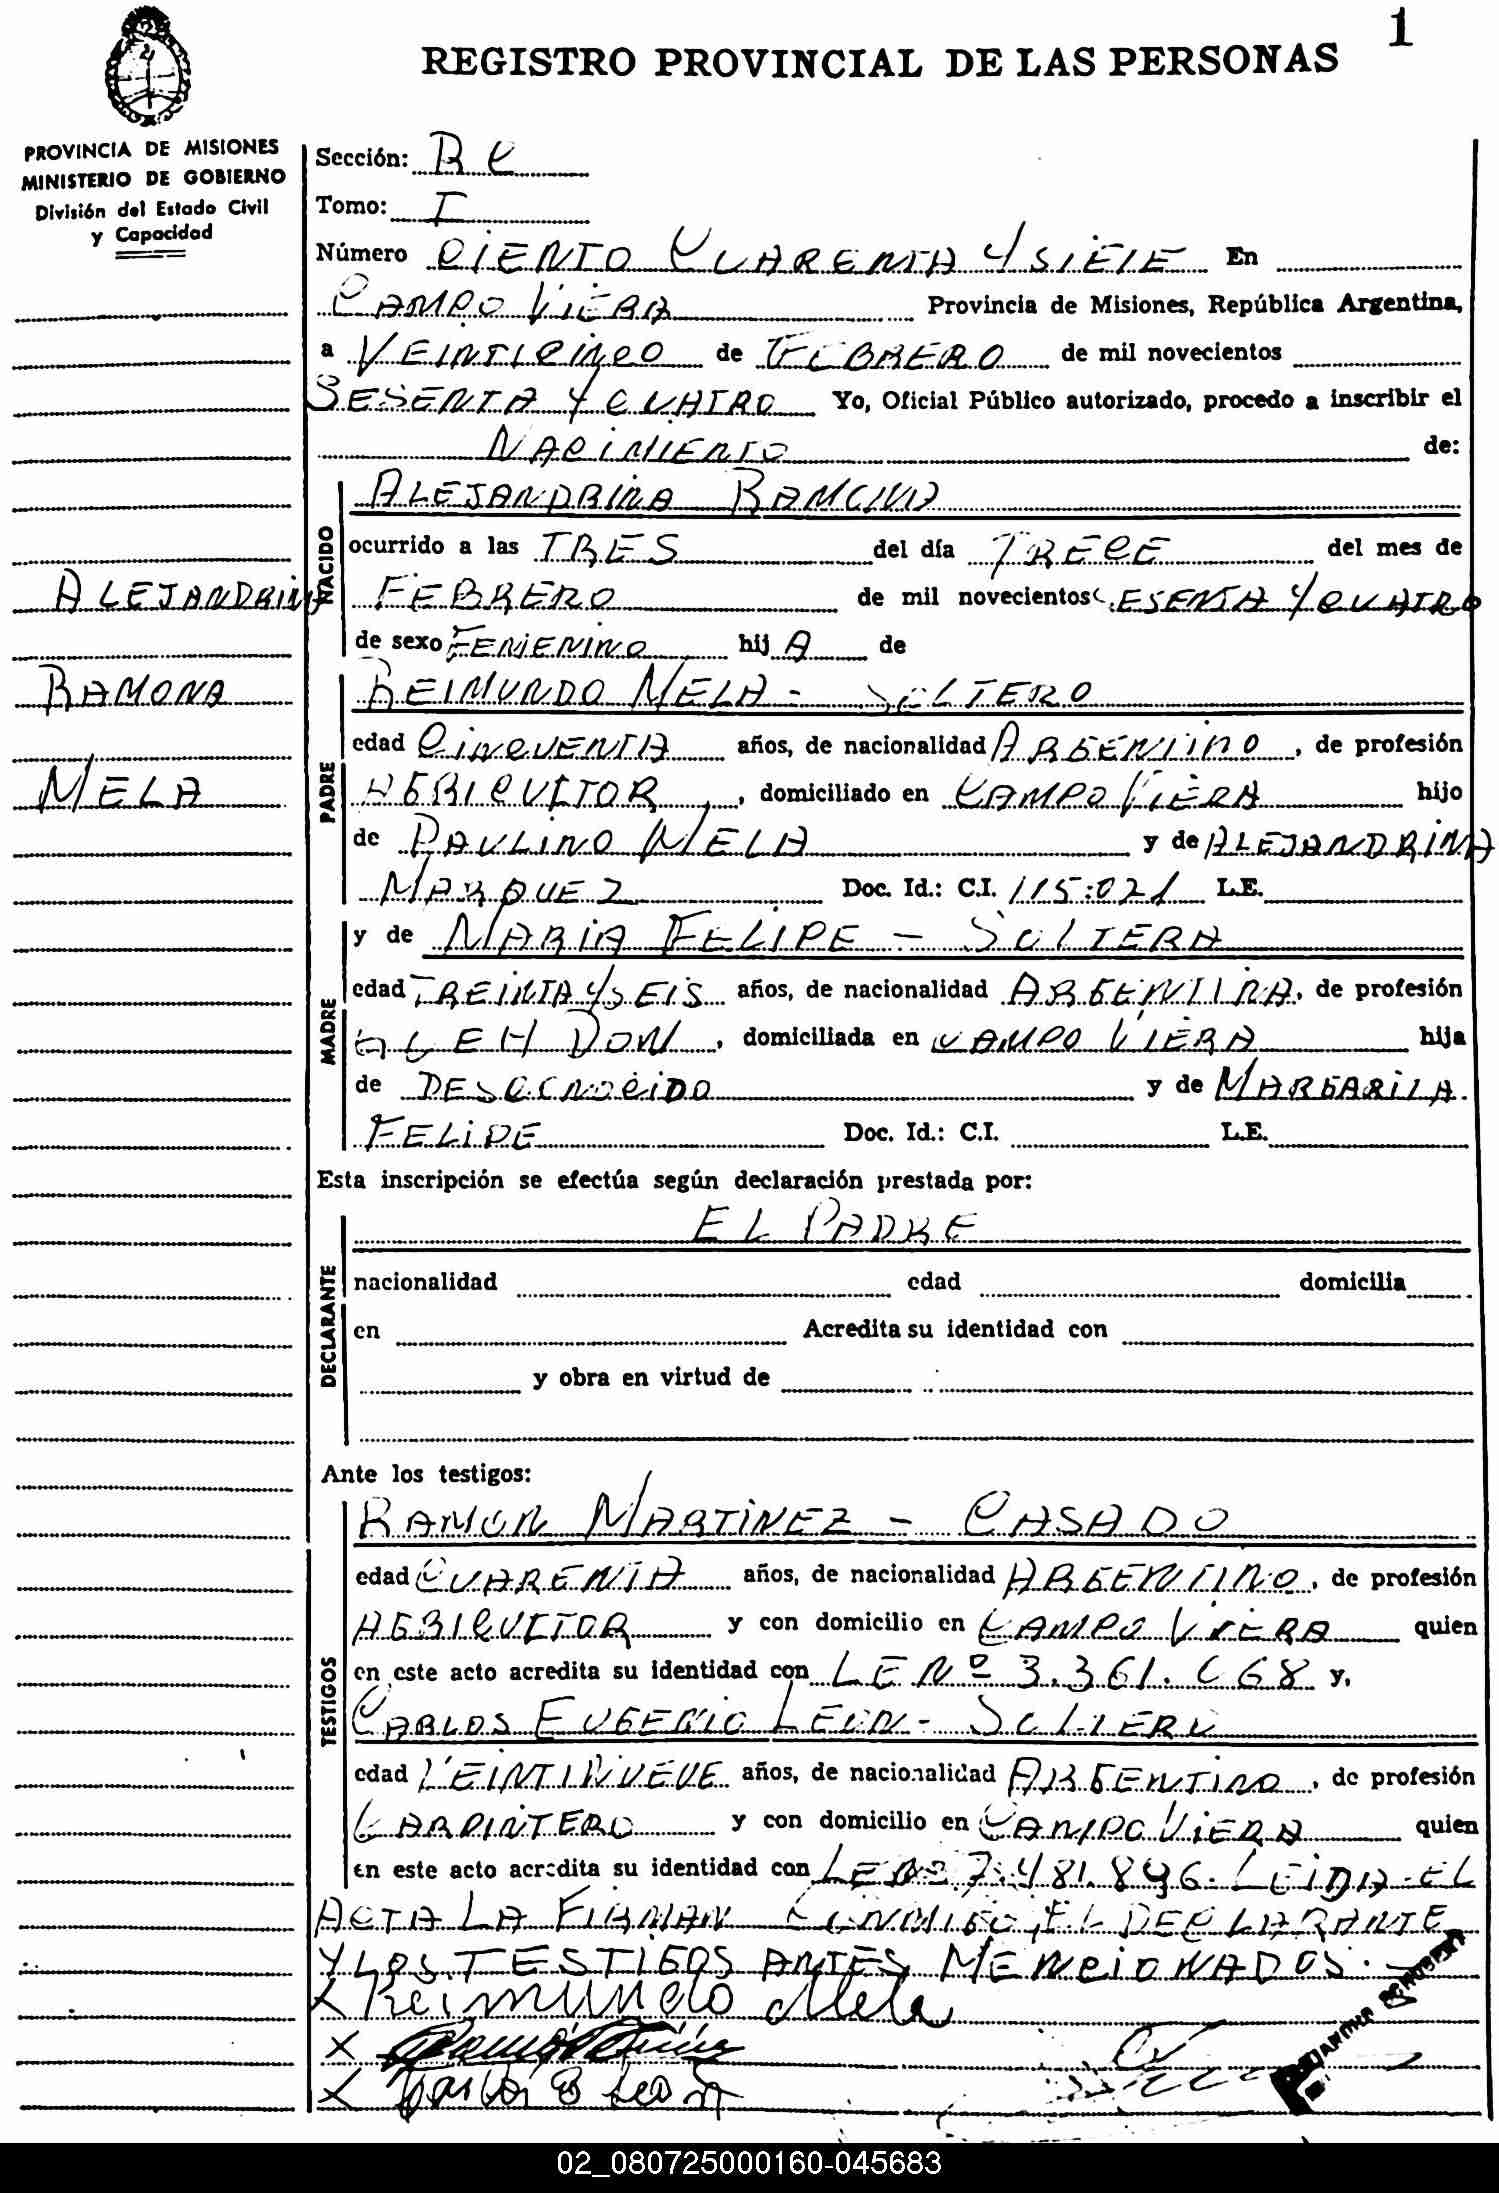 1
REGISTRO PROVINCIAL DE LAS PERSONAS
PROVINCIA DE MISIONES
MINISTERIO DE GOBIERNO
División del Estado Civil
y Capacidad
ALEJANDRINA
RAMONA
MELA
Sección: RC
Tomo: I
Número CIENTO CUARENTA Y SIETE En
CAMPO VIERA Provincia de Misiones, República Argentina,
a VEINTICINCO de FEBRERO de mil novecientos
SESENTA Y CUATRO Yo, Oficial Público autorizado, procedo a inscribir el
NACIMIENTO de:
NACIDO
ALEJANDRINA RAMONA
ocurrido a las TRES del día TRECE del mes de
FEBRERO de mil novecientos SESENTA Y CUATRO
de sexo FEMENINO hij A de
PADRE
REIMUNDO MELA - SOLTERO
edad CINCUENTA años, de nacionalidad ARGENTINO, de profesión
AGRICULTOR, domiciliado en CAMPO VIERA hijo
de PAULINO MELA y de ALEJANDRINA
MARQUEZ Doc. Id.: C.I. 115:021 L.E.
MADRE
y de MARIA FELIPE - SOLTERA
edad TREINTA Y SEIS años, de nacionalidad ARGENTINA, de profesión
domiciliada en CAMPO VIERA hija
de DESCONOCIDO y de MARGARITA
FELIPE Doc. Id.: C.I. L.E.
Esta inscripción se efectúa según declaración prestada por:
DECLARANTE
EL PADRE
nacionalidad edad domicilia
en Acredita su identidad con
y obra en virtud de
Ante los testigos:
TESTIGOS
RAMON MARTINEZ - CASADO
edad CUARENTA años, de nacionalidad ARGENTINO, de profesión
AGRICULTOR y con domicilio en CAMPO VIERA quien
en este acto acredita su identidad con LE Nº 3.361.068 y,
CARLOS EUGENIO LEON - SOLTERO
edad VEINTINUEVE años, de nacionalidad ARGENTINO, de profesión
CARPINTERO y con domicilio en CAMPO VIERA quien
en este acto acredita su identidad con LE Nº 7.481.896. LEIDA EL
ACTA LA FIRMAN CONMIGO, EL DECLARANTE
Y LOS TESTIGOS ANTES MENCIONADOS. -
X Reimundo Mela
X
X Carlos E León
02_080725000160-045683